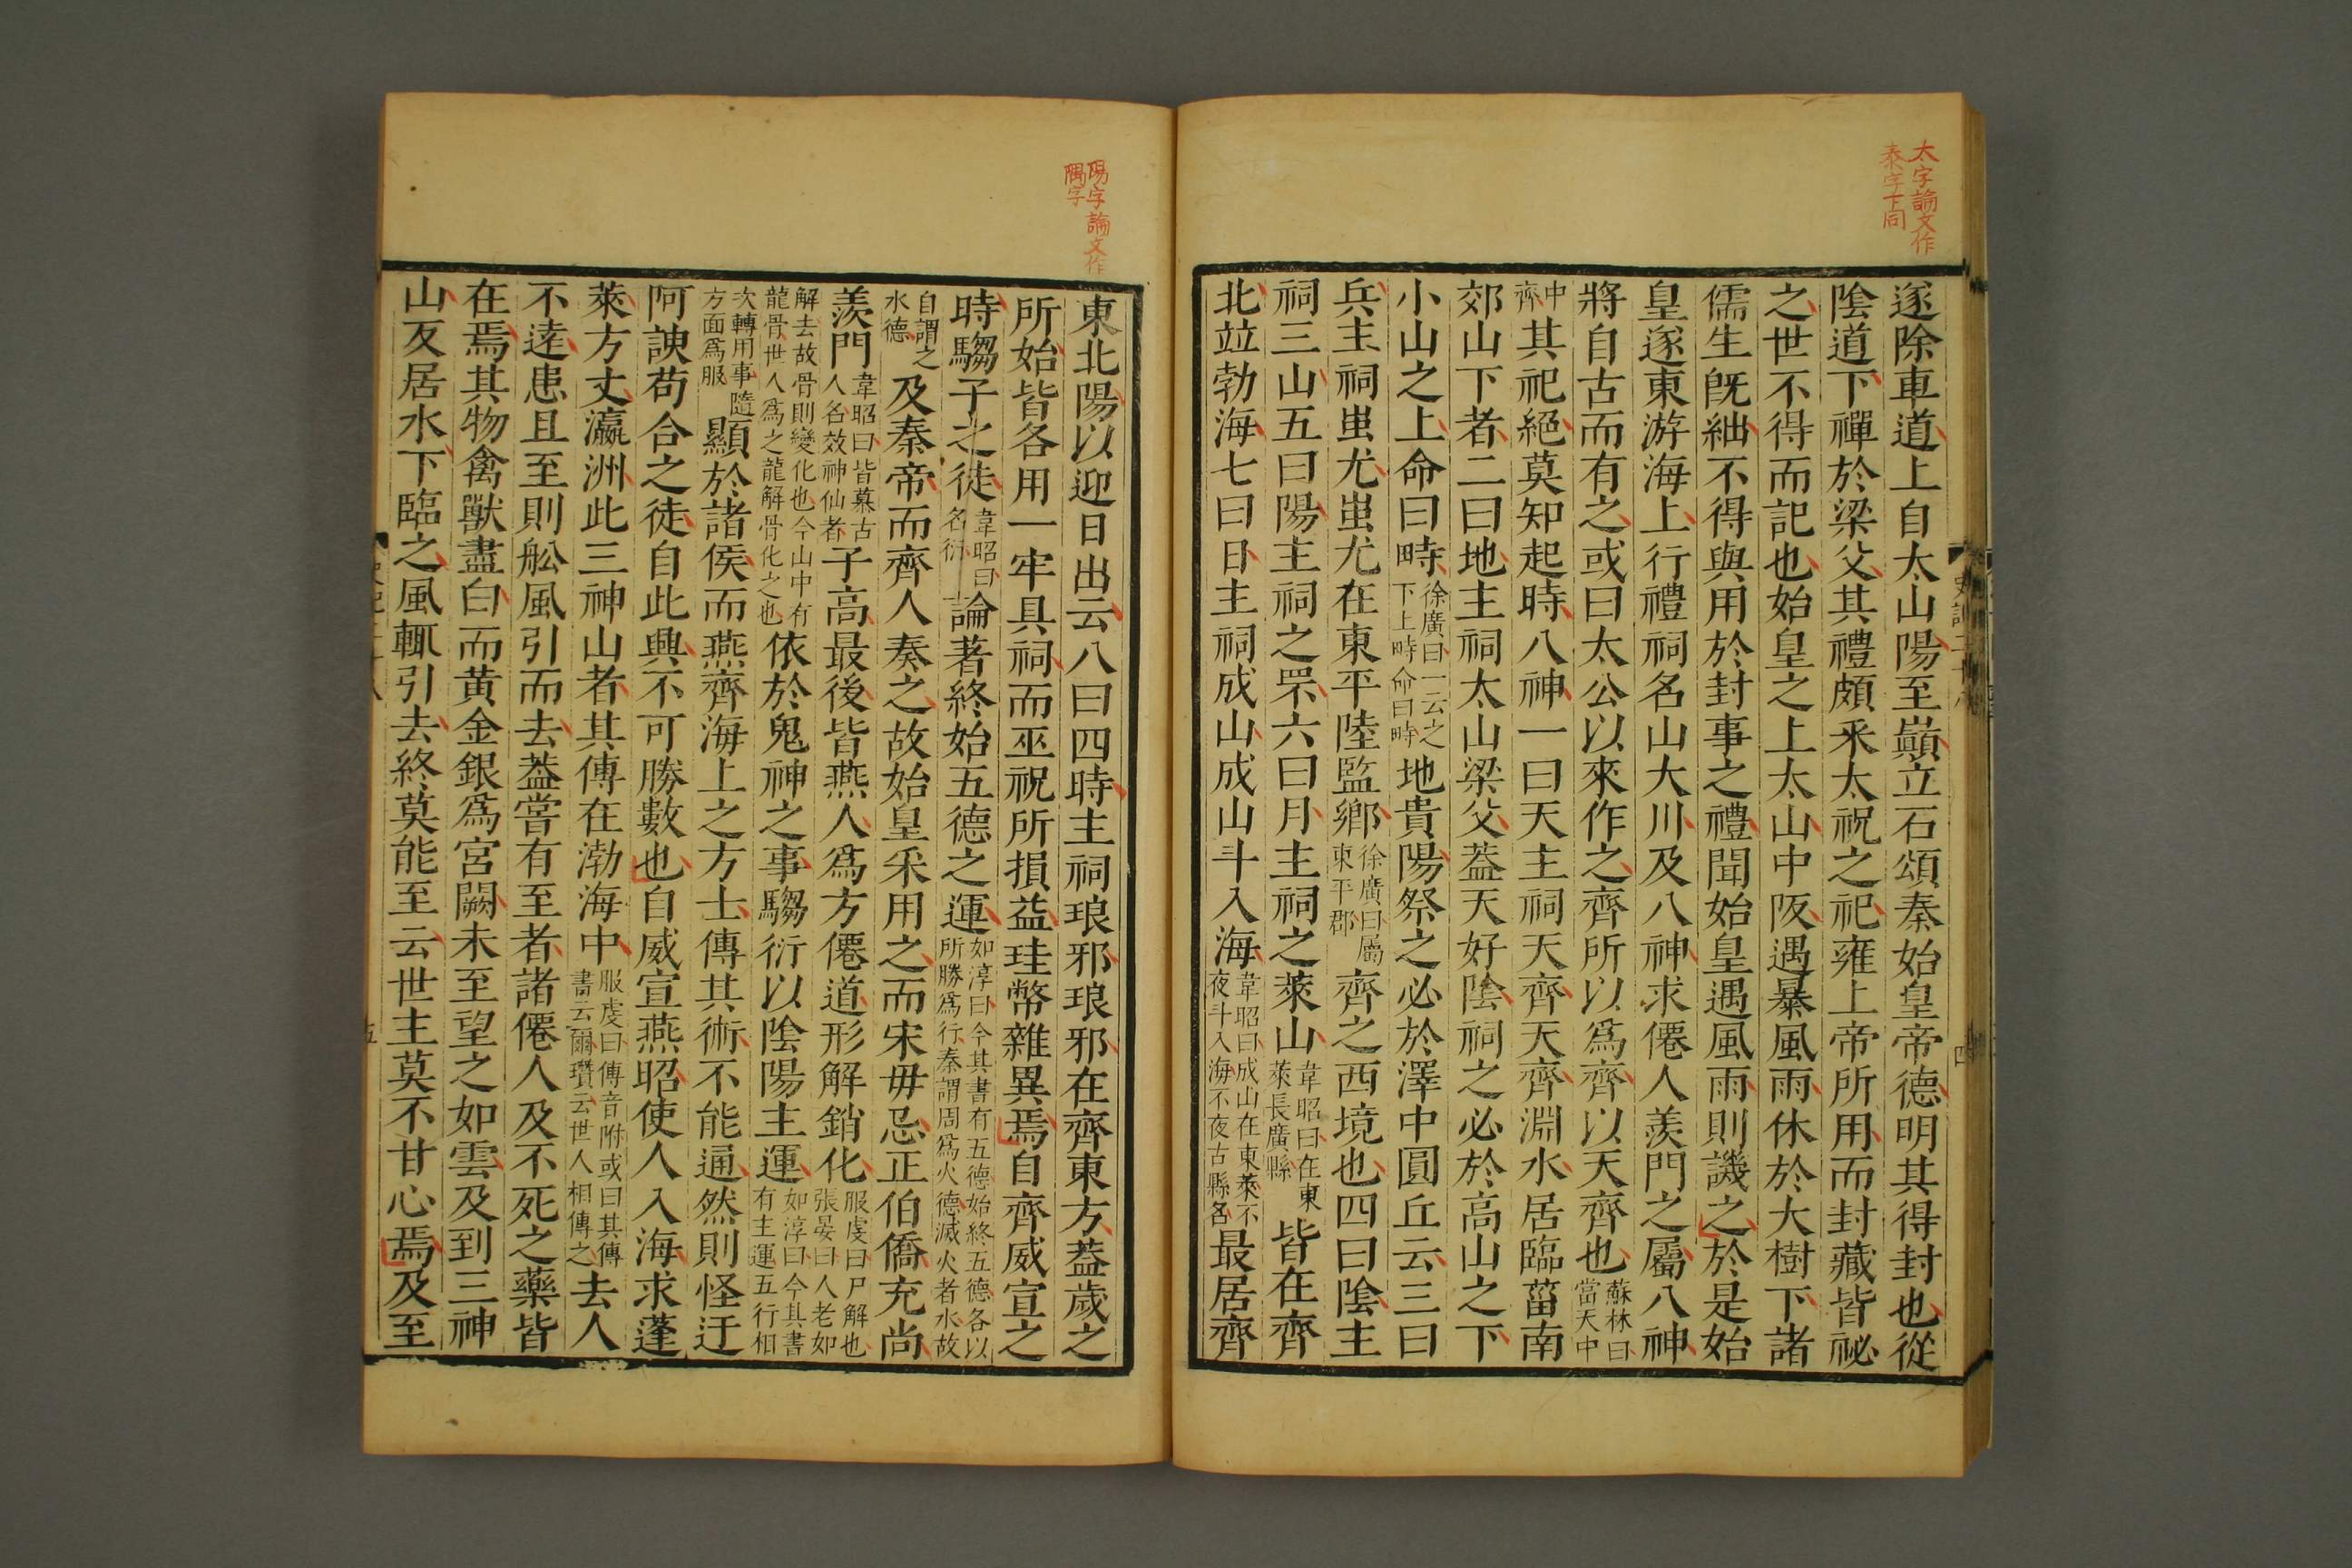 太字論文作
泰字下同
遂除車道上自太山陽至巔立石頌秦始皇帝德明其得封也從
陰道下禪於梁父其禮頗釆太祝之祀雍上帝所用而封藏皆祕
之世不得而記也始皇之上太山中阪遇暴風雨休於大樹下諸
儒生旣絀不得與用於封事之禮聞始皇遇風雨則譏之於是始
皇遂東游海上行禮祠名山大川及八神求僊人羨門之屬八神
將自古而有之或曰太公以來作之齊所以爲齊以天齊也蘇林曰當天中
中齊其祀絕莫知起時八神一曰天主祠天齊天齊淵水居臨菑南
郊山下者二曰地主祠太山梁父葢天好陰祠之必於高山之下
小山之上命曰畤徐廣曰一云之下上畤命曰畤地貴陽祭之必於澤中圓丘云三曰
兵主祠蚩尤蚩尤在東平陸監鄉徐廣曰屬東平郡齊之西境也四曰陰主
祠三山五曰陽主祠之罘六曰月主祠之萊山韋昭曰在東萊長廣縣皆在齊
北竝勃海七曰日主祠成山成山斗入海韋昭曰成山在東萊不夜斗入海不夜古縣名最居齊
史記二十八
四
陽字論文作
隅字
東北陽以迎日出云八曰四時主祠琅邪琅邪在齊東方葢歲之
所始皆各用一牢具祠而巫祝所損益珪幣雜異焉自齊威宣之
時騶子之徒韋昭曰名衍論著終始五德之運如淳曰今其書有五德始終五德各以所勝爲行秦謂周爲火德滅火者水故
自謂之水德及秦帝而齊人奏之故始皇采用之而宋毋忌正伯僑充尚
羨門韋昭曰皆慕古人名效神仙者子高最後皆燕人爲方僊道形解銷化服虔曰尸解也張晏曰人老如
解去故骨則變化也今山中有龍骨世人爲之龍解骨化之也依於鬼神之事騶衍以陰陽主運如淳曰今其書有主運五行相
次轉用事隨方面爲服顯於諸侯而燕齊海上之方士傳其術不能通然則怪迂
阿諛苟合之徒自此興不可勝數也自威宣燕昭使人入海求蓬
萊方丈瀛洲此三神山者其傳在渤海中服虔曰傳音附或曰其傳書云爾瓚云世人相傳之去人
不逺患且至則舩風引而去葢嘗有至者諸僊人及不死之藥皆
在焉其物禽獸盡白而黃金銀爲宮闕未至望之如雲及到三神
山反居水下臨之風輒引去終莫能至云世主莫不甘心焉及至
五